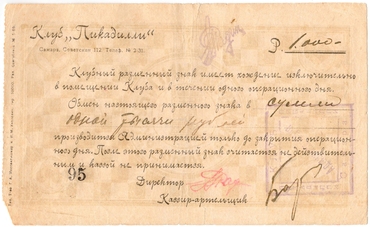 Клуб „Пикадилли"
Самара, Советская 112. Телеф. № 2-31.
Р. 1.000-
Клубный разменный знак имеет хождение исключительно
в помещении Клуба и в течении одного операционного дня.
Обмен настоящего разменного знака в сумме
одной тысячи рублей
производится Администрацией только до закрытия операцион-
ного дня. После этого разменный знак считается не действитель-
ным и кассой не принимается.
95
Директор
Кассир-артельщик